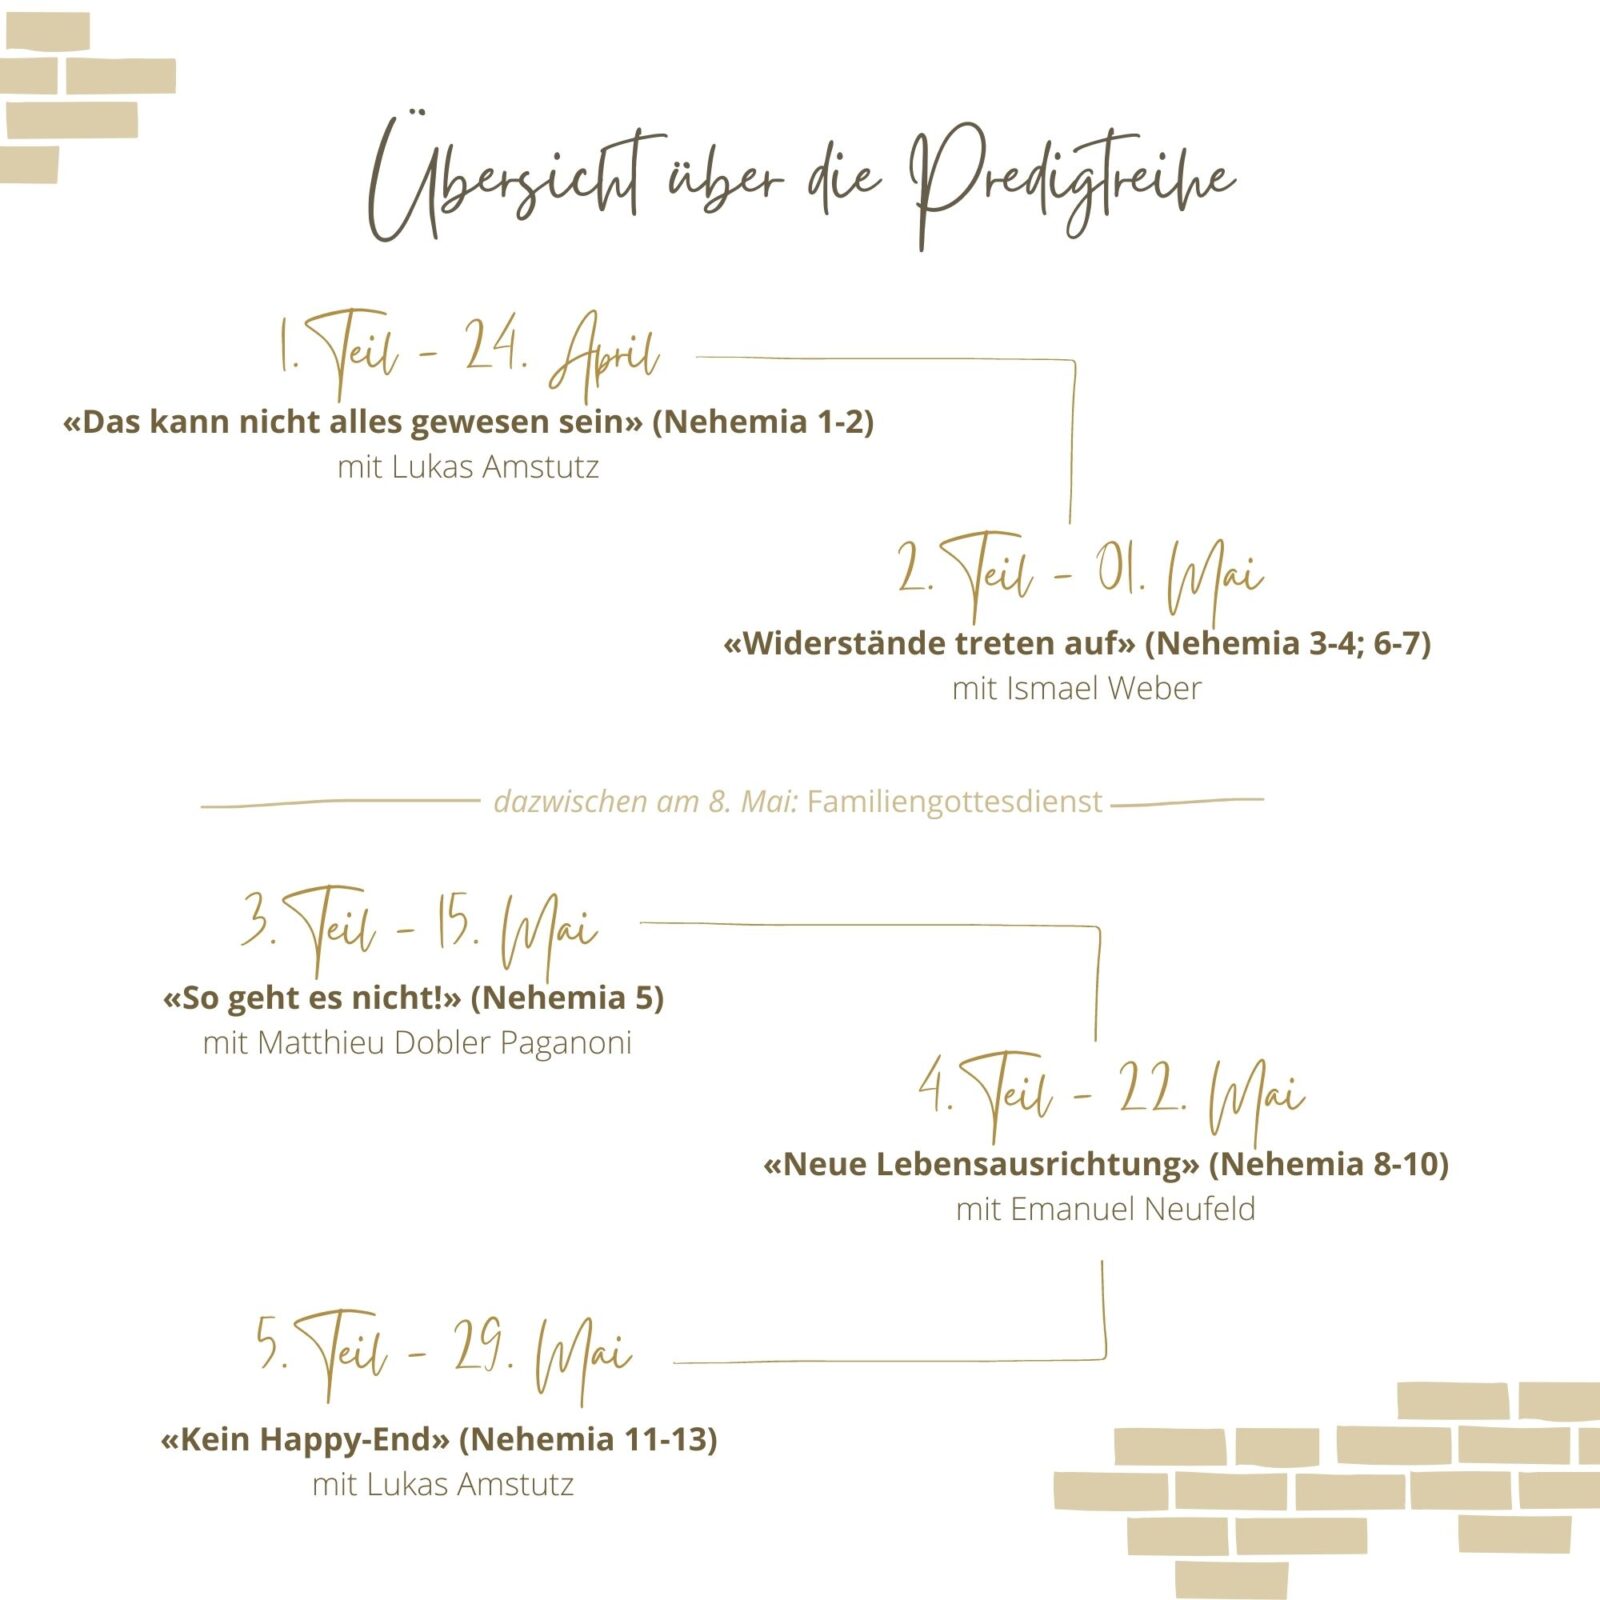 Übersicht über die Predigtreihe
1. Teil - 24. April
«Das kann nicht alles gewesen sein» (Nehemia 1-2)
mit Lukas Amstutz
2. Teil - 01. Mai
«Widerstände treten auf» (Nehemia 3-4; 6-7)
mit Ismael Weber
dazwischen am 8. Mai: Familiengottesdienst
3. Teil - 15. Mai
«So geht es nicht!» (Nehemia 5)
mit Matthieu Dobler Paganoni
4. Teil - 22. Mai
«Neue Lebensausrichtung» (Nehemia 8-10)
mit Emanuel Neufeld
5. Teil - 29. Mai
«Kein Happy-End» (Nehemia 11-13)
mit Lukas Amstutz